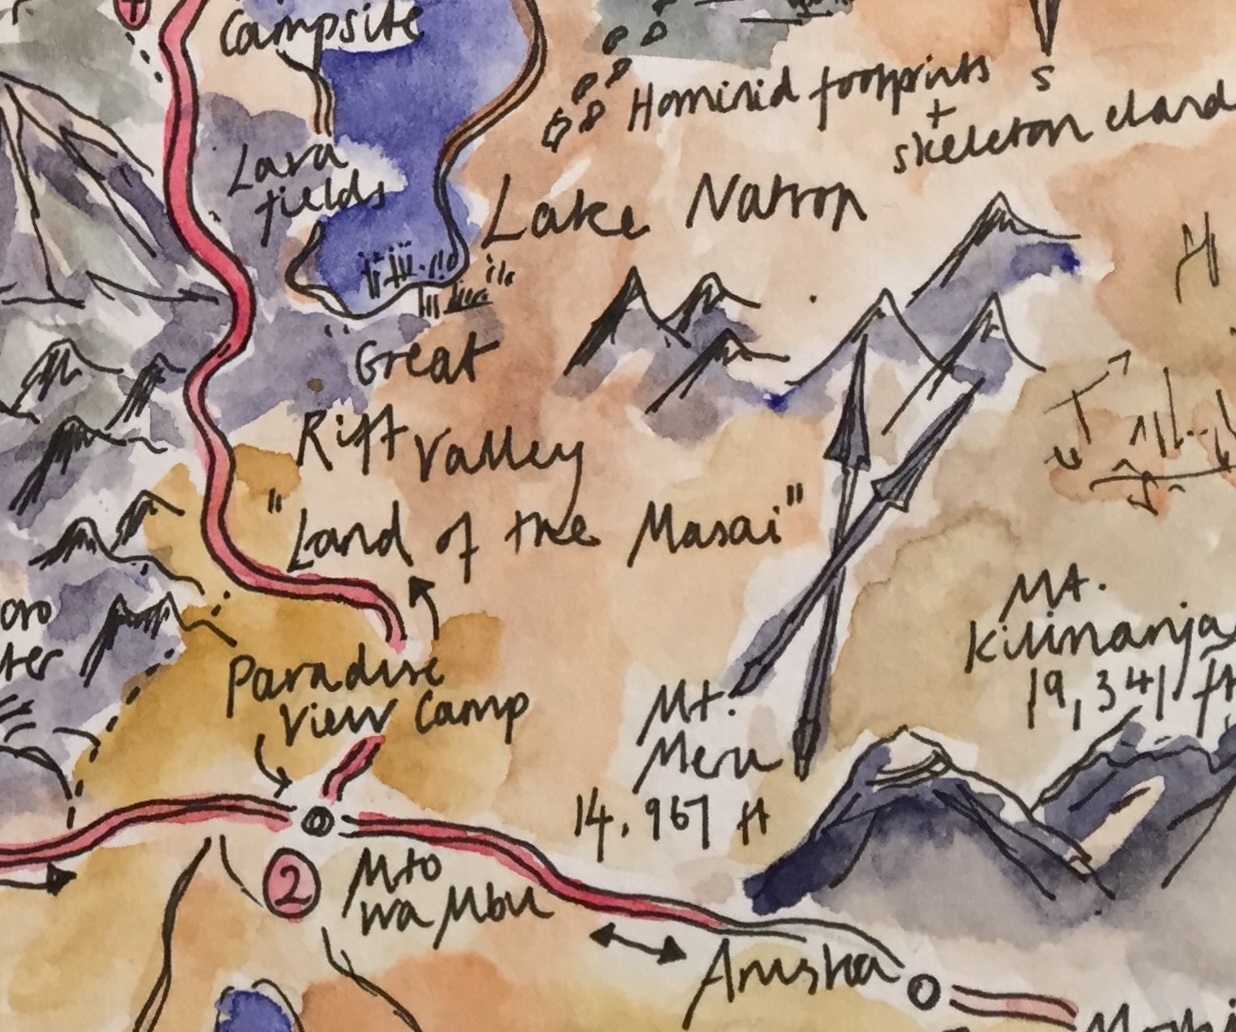 Campsite
Hominid footprints
+
skeleton eland
S
Lava
fields
Lake Natron
Great
Rift Valley
"Land of the Masai"
oro
ter
Paradise
View Camp
Mt.
Kilimanja
19,341 ft
Mt.
Meru
14,967 ft
2
Mto
wa Mbu
Arusha